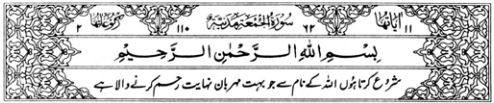 اٰیَاتُهَا ۱۱ ۶۲ سُوْرَةُ الْجُمُعَةِ مَدَنِیَّةٌ ۱۱۰ رُكُوْعَاتُهَا ۲
بِسْمِ اللّٰهِ الرَّحْمٰنِ الرَّحِیْمِ
شروع کرتا ہوں اللہ کے نام سے جو بہت مہربان نہایت رحم کرنے والا ہے